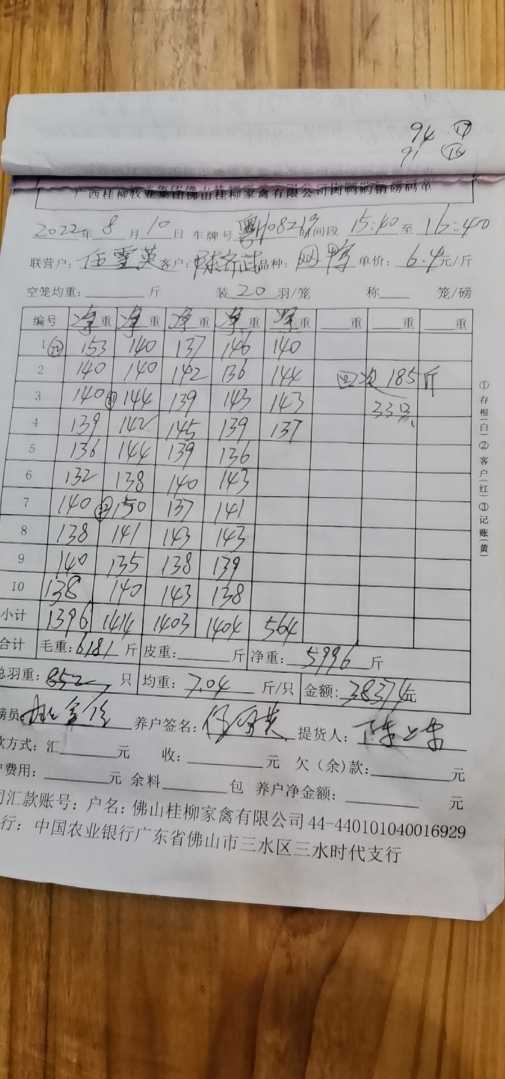 94 ⑰
91 ⑯
2022年 8月10日 车牌号 粤H08219 时间段 15:40 至 16:40
联营户: 客户: 品种: 单价: 6.4元/斤
空笼均重: 斤 装 20 羽/笼 称 笼/磅
编号 净重 净重 净重 净重 净重 重 重 重
1 153 140 137 146 140
2 140 140 142 136 144 次 185斤
3 140 144 139 143 143 33只
4 139 142 145 139 137
5 136 144 139 136
6 132 138 140 143
7 140 150 137 141
8 138 141 143 143
9 140 135 138 139
10 138 140 143 138
小计 1396 1414 1403 1404 564
合计 毛重: 6181 斤 皮重: 斤 净重: 5996 斤
总羽重: 852 只 均重: 7.04 斤/只 金额: 38374元
磅员 养户签名: 提货人:
款方式: 汇 元 收: 元 欠(余)款: 元
费用: 元 余料 包 养户净金额: 元
司汇款账号: 户名: 佛山桂柳家禽有限公司 44-440101040016929
行: 中国农业银行广东省佛山市三水区三水时代支行
①存根(白)②客户(红)③记账(黄)